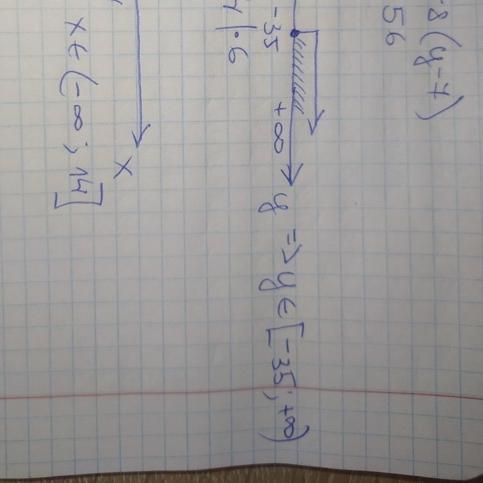 -8(y-7)
56
-35 +∞ y => y ∈ [-35; +∞)
|·6
x
x ∈ (-∞; 14]